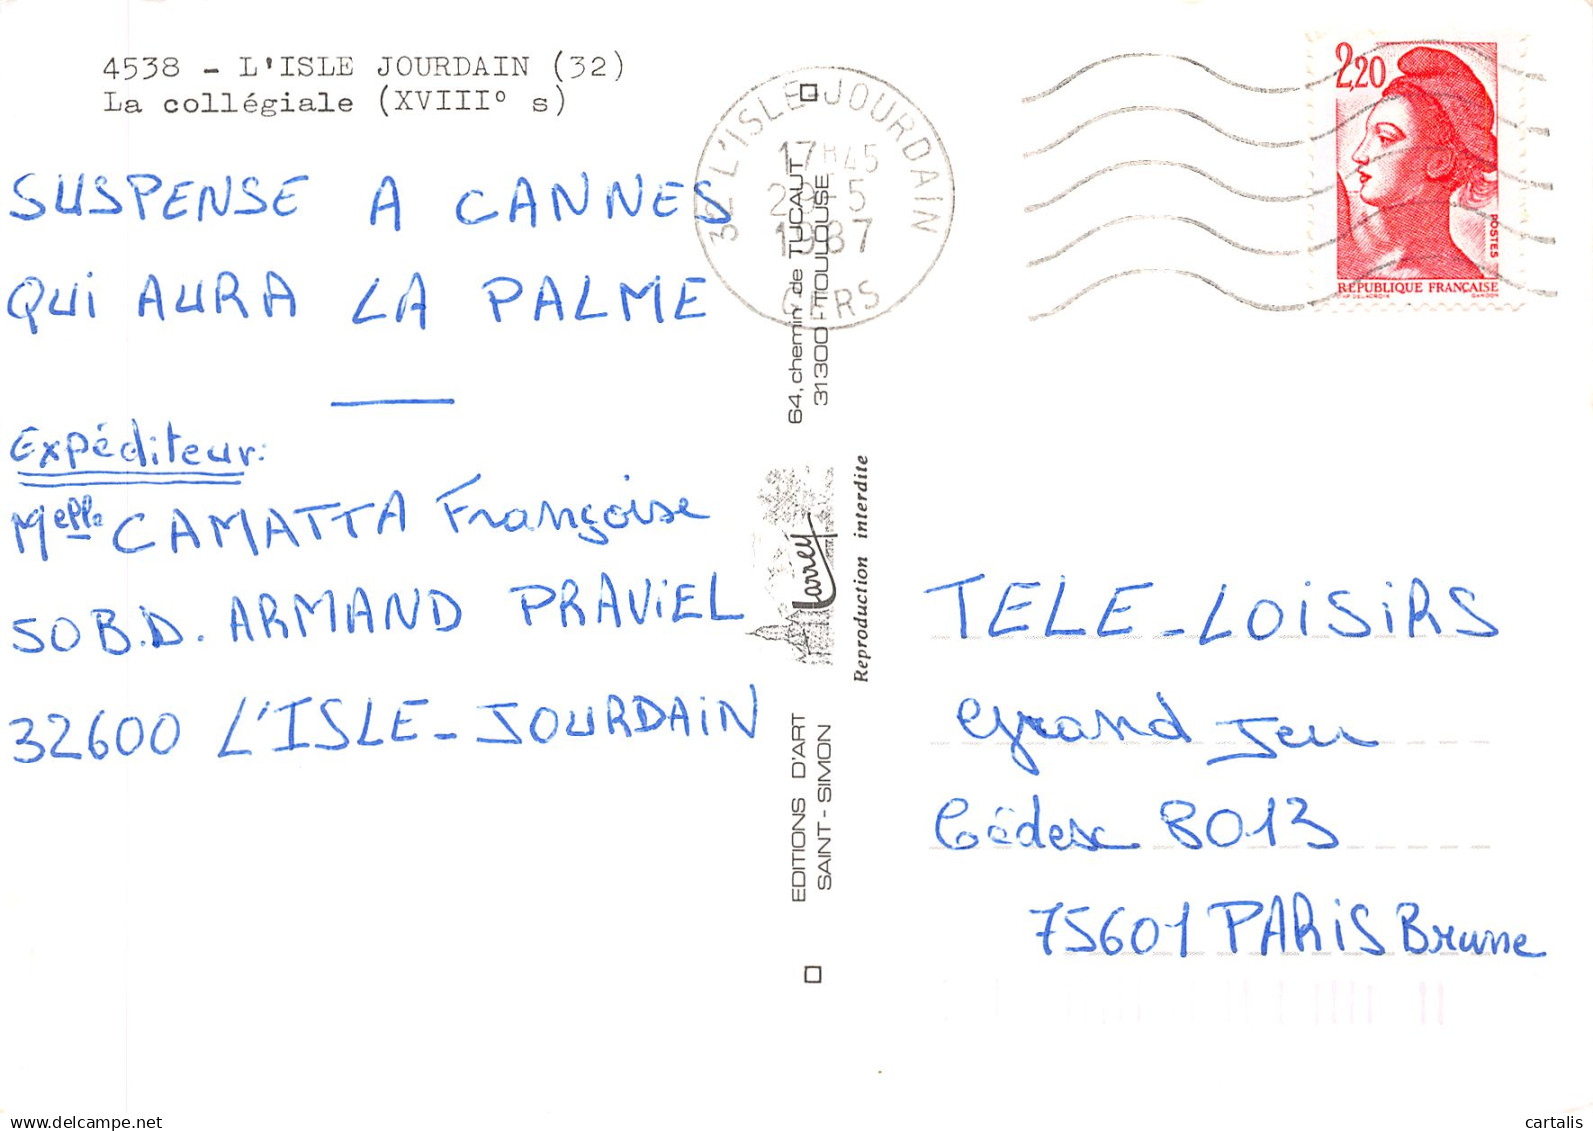 4538 - L'ISLE JOURDAIN (32)
La collégiale (XVIIIº s)
SUSPENSE A CANNES
QUI AURA LA PALME
Expéditeur:
Melle CAMATTA Françoise
50 B.D. ARMAND PRAVIEL
32600 L'ISLE-JOURDAIN
32 L'ISLE-JOURDAIN
17H45
5
1987
GERS
64, chemin de TUCAUT
31300 - TOULOUSE
Larrey
Reproduction interdite
EDITIONS D'ART
SAINT-SIMON
2,20
POSTES
RÉPUBLIQUE FRANÇAISE
TELE-LOISIRS
Grand Jeu
Cédex 8013
75601 PARIS Brune
delcampe.net
cartalis